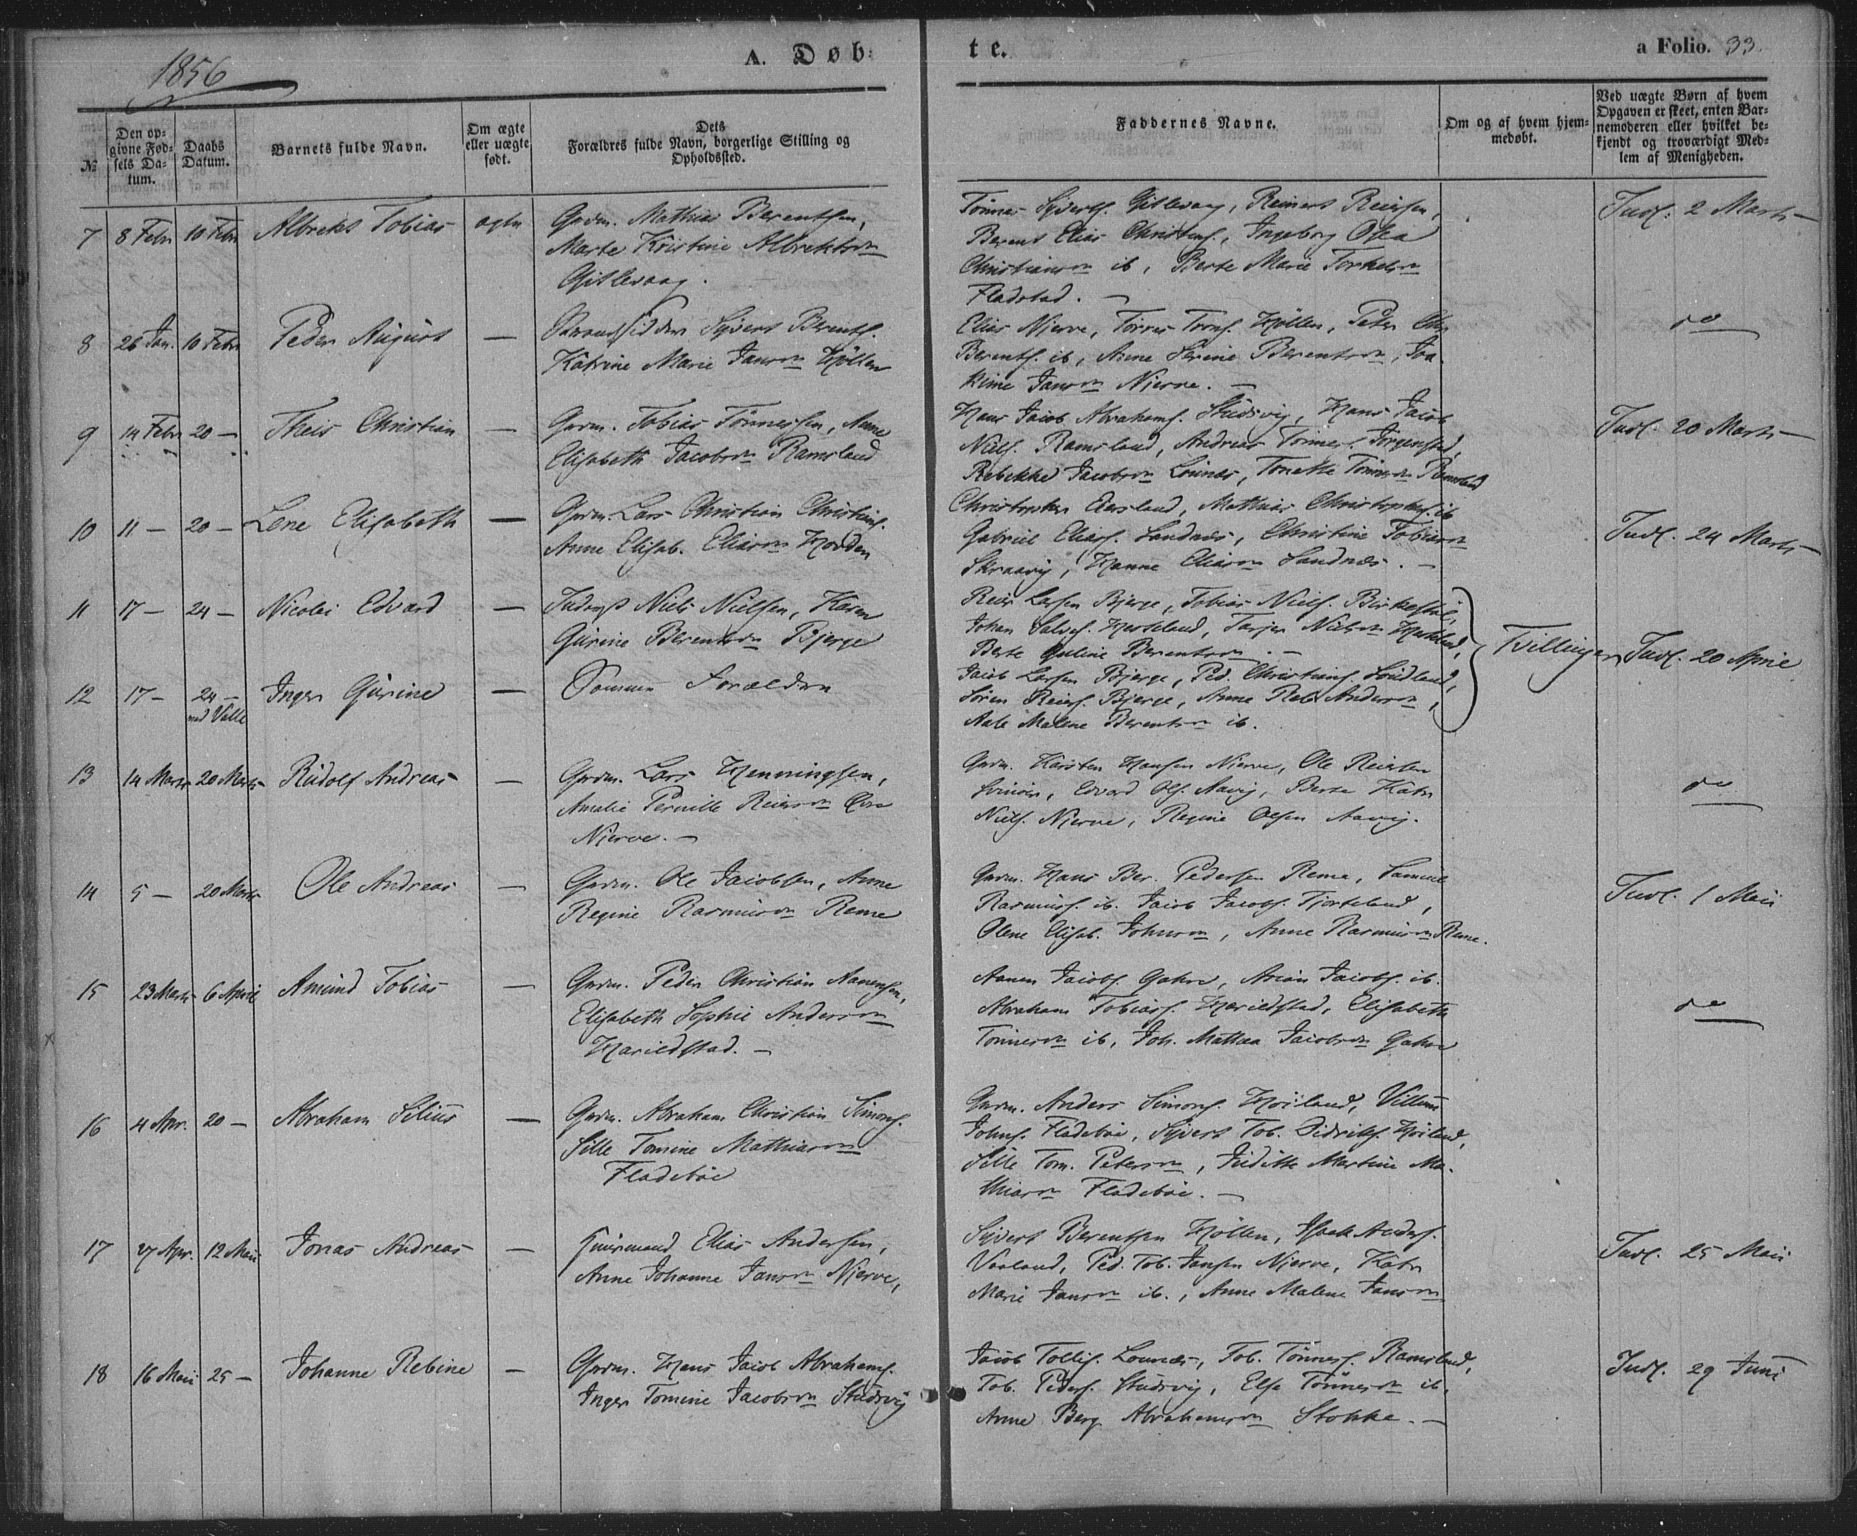 1856
A. Døb-
te.
a Folio. 33.
№
Den op-
givne Fød-
sels Da-
tum.
Daabs
Datum.
Barnets fulde Navn.
Om ægte
eller uægte
født.
Dets
Forældres fulde Navn, borgerlige Stilling og
Opholdssted.
Faddernes Navne.
Om og af hvem hjem-
medøbt.
Ved uægte Børn af hvem
Opgaven er skeet, enten Bar-
nemoderen eller hvilket be-
kjendt og troværdigt Med-
lem af Menigheden.
7 8 Febr 10 Febr Albrekt Tobias ægte Grdm. Mathias Berentsen,
Marte Kristine Albrektsdn
Gitlevaag.
Tønnes Syverts. Gitlevaag, Reinert Reiersen,
Berent Elias Christens., Ingeborg Osea
Christiansdn ib, Berte Marie Torkelsdn
Fladstad. —
Indl. 2 Marts —
8 26 Jan. 10 Febr Peder August — Strandsidder Syvert Berents.
Katrine Marie Jansdn Høllen
Elias Njerve, Tørres Høllen, Peter
Berents. ib, Anne Serine Berentsdn, Joa-
kime Jansdn Njerve. —
do
9 14 Febr 20 — Theis Christian — Grdm. Tobias Tønnessen, Anne
Elisabeth Jacobsdn Ramsland
Hans Jacob Abrahams. Studsvig, Hans Jacob
Niels. Ramsland, Andreas Tønnes. Jørgenstad,
Rebekke Jacobsdn Lounæs, Tonette Tønnesdn Ramsland
Indl. 20 Marts —
10 11 — 20 — Lene Elisabeth — Grdm. Lars Christian Christians.
Anne Elisab. Eliasdn Hodden
Christopher Eersland, Mathias Christophers. ib
Gabriel Elias. Landnæs, Christine Tobiasdn
Skraavig, Hanne Eliasdn Sandnæs. —
Indl. 24 Marts —
11 17 — 24 — Nicolai Edvard — Inderst Niels Nielsen, Karen
Gurine Berentsdn Bjerge
Reier Larsen Bjerge, Tobias Niels. Birkestøl,
Johan Salves. Haaseland, Tarjer Nielsdn
Berte Guline Berentsdn. —
Tvillinger
Indl. 20 April
12 17 — 24 —
med Valle
Inger Gurine — Samme Forældre
Jacob Larsen Bjerge, Ped. Christians. Sødland,
Søren Reiers. Bjerge, Anne Reb. Andersdn,
Aale Malene Berentsdn ib.
13 14 Marts 20 Marts Rudolf Andreas — Grdm. Lars Henningsen,
Amalie Pernille Reiersdn
Njerve. —
Grdm. Karsten Hansen Njerve, Ole Reiersen
Edvard Ols. Aavig, Berte Katr
Niels. Njerve, Regine Olsen Aavig.
do
14 5 — 20 Marts Ole Andreas — Grdm. Ole Jacobsen, Anne
Regine Rasmusdn Reme
Grdm. Hans Ber. Pedersen Reme, Samuel
Rasmus. ib. Jacob Jacobs. Tjorteland,
Olene Elisab. Johnsdn, Anne Rasmusdn Reme.
Indl. 1 Mai
15 23 Marts 6 April Amund Tobias — Grdm. Peder Christian Aanensen,
Elisabeth Sophie Andersdn
Harildstad. —
Aanen Jacobs. Gahre, Arian Jacobs. ib.
Abraham Tobias. Harildstad, Elisabeth
Tønnesdn ib, Joh. Mathea Jacobsdn Gahre
do
16 4 Apr. 20 — Abraham Selius — Grdm. Abraham Christian Simons.
Sille Tomine Mathiasdn
Fladebøe
Grdm. Anders Simons. Høiland, Villum
Johns. Fladebøe, Syvert Tob. Didriks. Høiland,
Sille Tom. Petersdn, Juditte Martine Ma-
thiasdn Fladebøe. —
17 27 Apr. 12 Mai Jonas Andreas — Huusmand Elias Andersen,
Anne Johanne Jansdn Njerve,
Syvert Berentsen Høllen, Isak Anders.
Vaaland, Ped. Tob. Jansen Njerve, Katr
Marie Jansdn ib., Anne Malene Jansdn
Indl. 25 Mai
18 16 Mai 25 — Johanne Rebine — Grdm. Hans Jacob Abrahams.
Inger Tomine Jacobsdn Studsvig
Jacob Tollis. Lounæs, Tob. Tønnes. Ramsland,
Tob. Peders. Studsvig, Else Tønnesdn ib,
Anne Berg. Abrahamsdn Stokke. —
Indl. 29 Juni